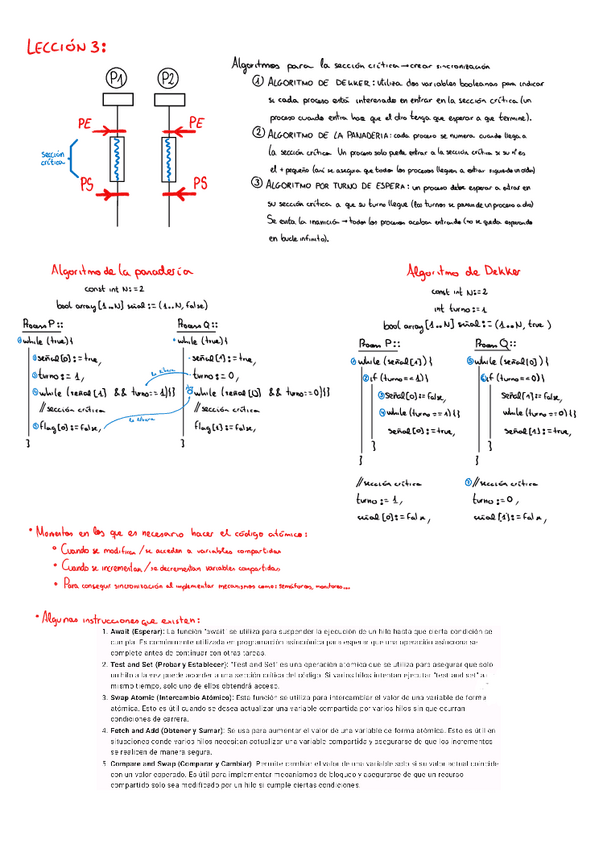 LECCIÓN 3:
P1 P2
PE PE
sección
crítica
PS PS
Algoritmos para la sección crítica → crear sincronización
① ALGORITMO DE DEKKER: Utiliza dos variables booleanas para indicar
si cada proceso está interesado en entrar en la sección crítica (un
proceso cuando entra hace que el otro tenga que esperar a que termine).
② ALGORITMO DE LA PANADERIA: cada proceso se numera cuando llega a
la sección crítica. Un proceso solo puede entrar a la sección crítica si su nº es
el + pequeño (así se asegura que todos los procesos lleguen a entrar siguiendo un orden)
③ ALGORITMO POR TURNO DE ESPERA: un proceso debe esperar a entrar en
su sección crítica a que su turno llegue (los turnos se pasan de un proceso a otro)
Se evita la inanición → todos los procesos acaban entrando (no se queda esperando
en bucle infinito).
Algoritmo de la panadería
const int N:=2
bool array[1..N] señal := (1..N, false)
Process P::
while (true){
señal[0]:=true,
turno:= 1,
while (señal[1] && turno==1){}
//sección crítica
flag[0]:=false,
}
Process Q::
while (true){
señal[1]:=true,
turno:= 0,
while (señal[0] && turno==0){}
//sección crítica
flag[1]:=false,
}
Algoritmo de Dekker
const int N:=2
int turno:=1
bool array[1..N] señal:=(1..N, true)
Process P::
while (señal[1]){
if (turno==1){
señal[0]:=false,
while (turno==1){}
señal[0]:=true,
}
}
//sección crítica
turno:= 1,
señal[0]:=false,
Process Q::
while (señal[0]){
if (turno==0){
señal[1]:=false,
while (turno==0){}
señal[1]:=true,
}
}
//sección crítica
turno:=0,
señal[1]:=false,
* Momentos en los que es necesario hacer el código atómico:
* Cuando se modifican/se acceden a variables compartidas
* Cuando se incrementan/se decrementan variables compartidas
* Para conseguir sincronización al implementar mecanismos como: semáforos, monitores...
* Algunas instrucciones que existen:
1. Await (Esperar): La función "await" se utiliza para suspender la ejecución de un hilo hasta que cierta condición se
cumpla. Es comúnmente utilizada en programación asincrónica para esperar que una operación asíncrona se
complete antes de continuar con otras tareas.
2. Test and Set (Probar y Establecer): "Test and Set" es una operación atómica que se utiliza para asegurar que solo
un hilo a la vez puede acceder a una sección crítica del código. Si varios hilos intentan ejecutar "test and set" al
mismo tiempo, solo uno de ellos obtendrá acceso.
3. Swap Atomic (Intercambio Atómico): Esta función se utiliza para intercambiar el valor de una variable de forma
atómica. Esto es útil cuando se desea actualizar una variable compartida por varios hilos sin que ocurran
condiciones de carrera.
4. Fetch and Add (Obtener y Sumar): Se usa para aumentar el valor de una variable de forma atómica. Esto es útil en
situaciones donde varios hilos necesitan actualizar una variable compartida y asegurarse de que los incrementos
se realicen de manera segura.
5. Compare and Swap (Comparar y Cambiar): Permite cambiar el valor de una variable solo si su valor actual coincide
con un valor esperado. Es útil para implementar mecanismos de bloqueo y asegurarse de que un recurso
compartido solo sea modificado por un hilo si cumple ciertas condiciones.